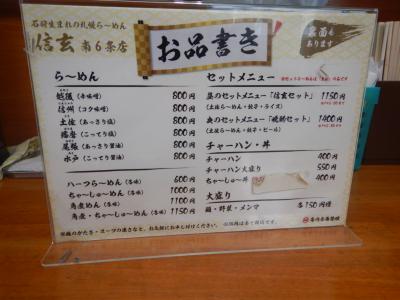 石狩生まれの札幌らーめん
信玄 南6条店
お品書き
裏面も
あります
らーめん
越後(辛味噌) 800円
信州(コク味噌) 800円
土佐(あっさり塩) 800円
播磨(こってり塩) 800円
尾張(あっさり醤油) 800円
水戸(こってり醤油) 800円
ハーフらーめん(各味) 600円
ちゃーしゅーめん(各味) 1000円
角煮めん(各味) 1100円
角煮・ちゃーしゅーめん(各味) 1150円
セットメニュー
昼のセットメニュー「信玄セット」 1150円
(土佐らーめん・餃子・ライス)
夜のセットメニュー「晩酌セット」 1400円
(土佐らーめん・餃子・ビール)
チャーハン・丼
チャーハン 400円
チャーハン大盛り 550円
ちゃーしゅー丼 400円
大盛り
麺・野菜・メンマ 各150円増